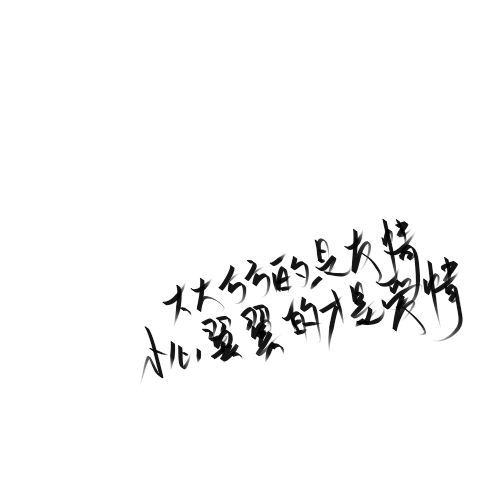 大大方方的是友情
小心翼翼的才是爱情